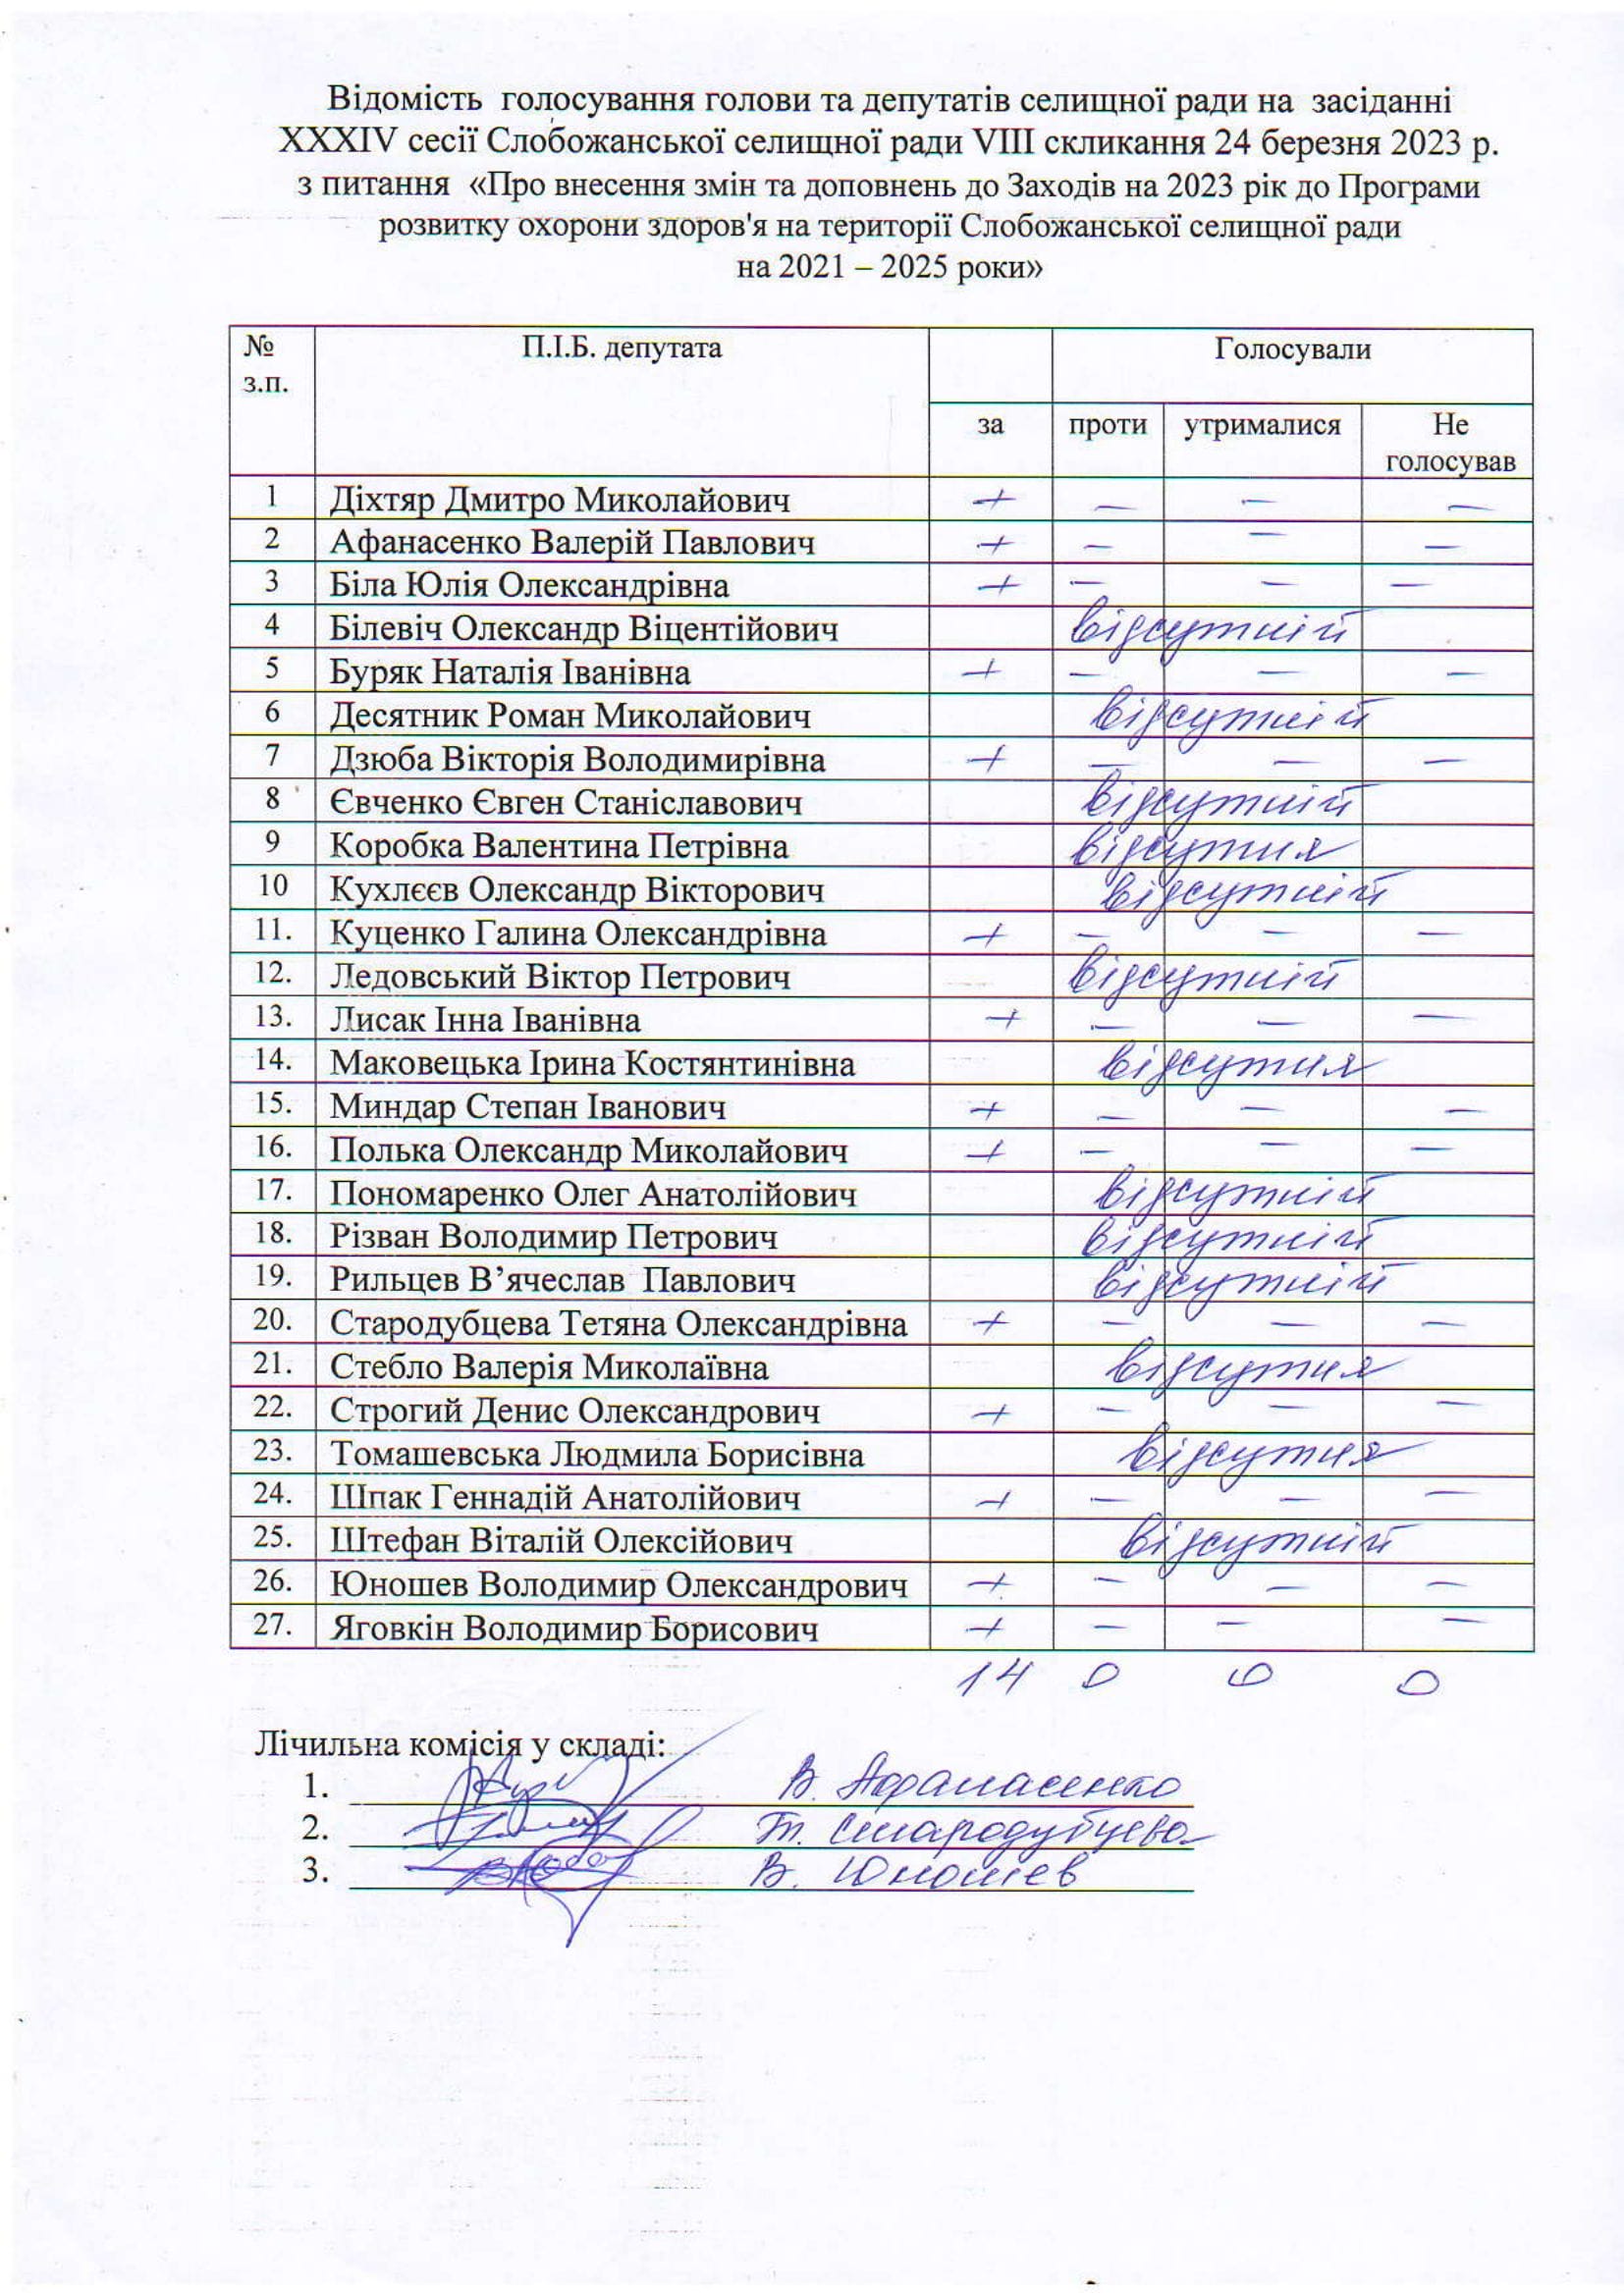 Відомість голосування голови та депутатів селищної ради на засіданні
XXXIV сесії Слобожанської селищної ради VIII скликання 24 березня 2023 р.
з питання «Про внесення змін та доповнень до Заходів на 2023 рік до Програми
розвитку охорони здоров'я на території Слобожанської селищної ради
на 2021 – 2025 роки»
№ П.І.Б. депутата Голосували
з.п.
за проти утрималися Не
голосував
1 Діхтяр Дмитро Миколайович + — — —
2 Афанасенко Валерій Павлович + — — —
3 Біла Юлія Олександрівна + — — —
4 Білевіч Олександр Віцентійович відсутній
5 Буряк Наталія Іванівна + — — —
6 Десятник Роман Миколайович відсутній
7 Дзюба Вікторія Володимирівна + — — —
8 Євченко Євген Станіславович відсутній
9 Коробка Валентина Петрівна відсутня
10 Кухлєєв Олександр Вікторович відсутній
11. Куценко Галина Олександрівна + — — —
12. Ледовський Віктор Петрович відсутній
13. Лисак Інна Іванівна + — — —
14. Маковецька Ірина Костянтинівна відсутня
15. Миндар Степан Іванович + — — —
16. Полька Олександр Миколайович + — — —
17. Пономаренко Олег Анатолійович відсутній
18. Різван Володимир Петрович відсутній
19. Рильцев В’ячеслав Павлович відсутній
20. Стародубцева Тетяна Олександрівна + — — —
21. Стебло Валерія Миколаївна відсутня
22. Строгий Денис Олександрович + — — —
23. Томашевська Людмила Борисівна відсутня
24. Шпак Геннадій Анатолійович + — — —
25. Штефан Віталій Олексійович відсутній
26. Юношев Володимир Олександрович + — — —
27. Яговкін Володимир Борисович + — — —
14 0 0 0
Лічильна комісія у складі:
1. В. Афанасенко
2. Т. Стародубцева
3. В. Юношев